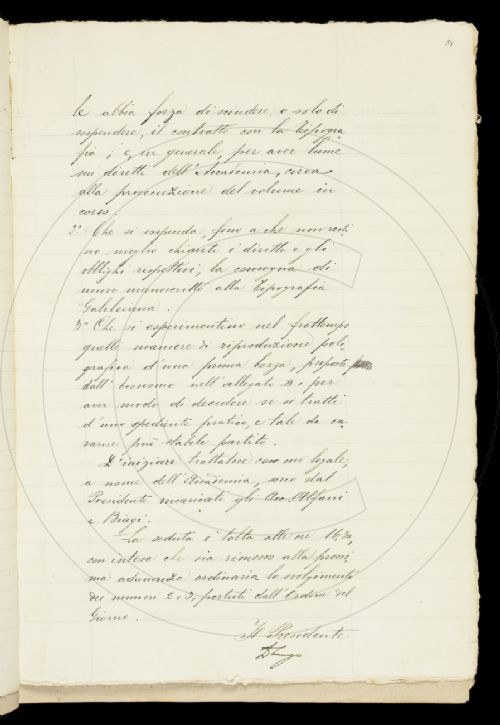 le abbia forza di scindere, o solo di
sospendere, il contratto con la Tipogra
fia; e, in generale, per aver lume
sui diritti dell'Accademia, circa
alla prosecuzione del volume in
corso.
2° Che si sospenda, fino a che non resti
no meglio chiariti i diritti e gli
obblighi rispettivi, la consegna di
nuovo manoscritto alla Tipografia
Galileiana.
3° Che si esperimentino nel frattempo
quelle maniere di riproduzione poli-
grafica d'una prima bozza, proposte
dall'Economo nell'allegato B, per
aver modo di decidere se si tratti
d'uno spediente pratico, e tale da ca-
varne più stabile partito.
D'iniziare trattative con un legale,
a nome dell'Accademia, sono dal
Presidente incaricati gli Acc. Alfani
e Biagi.
La seduta è tolta alle ore 16,30,
con intesa che sia rimesso alla prossi
ma adunanza ordinaria lo svolgimento
dei numeri 2 e 3, portati dall'Ordine del
Giorno.
Il Presidente